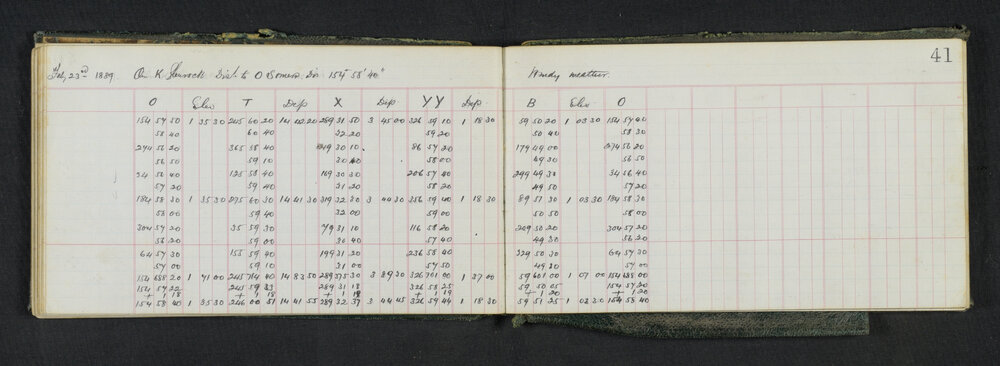 41
Feb, 23rd 1889. On K. Dist. to O Somers Dir 154° 58' 40" Windy weather.
O Elev T Dep X Dep YY Dep B Elev O
154 57 50 1 35 30 245 60 20 14 42 20 289 31 50 3 45 00 326 59 10 1 18 30 59 50 20 1 03 30 154 57 40
58 40 60 40 32 20 59 20 50 40 58 30
274 56 20 365 58 40 49 30 10 86 57 20 179 49 00 274 56 20
56 50 59 10 30 40 58 00 49 30 56 50
34 56 40 125 58 40 169 30 30 206 57 40 299 49 30 34 56 40
57 20 59 40 31 20 58 20 49 50 57 20
184 58 30 1 35 30 275 60 30 14 41 30 319 32 30 3 44 30 356 59 40 1 18 30 89 51 30 1 03 30 184 58 30
58 00 59 40 32 00 59 00 50 50 58 00
304 57 20 35 59 30 79 31 10 116 58 20 209 50 20 304 57 20
56 20 59 00 30 40 57 40 49 30 56 20
64 57 30 155 59 40 199 31 20 236 58 40 329 50 30 64 57 30
57 00 59 10 31 00 57 50 49 30 57 00
154 688 20 1 71 00 245 714 40 14 83 50 289 375 30 3 89 30 326 701 00 1 37 00 59 601 00 1 07 00 154 688 00
154 57 22 245 59 33 289 31 18 326 58 25 59 50 05 154 57 20
+ 1 18 + 1 18 + 1 19 + 1 19 + 1 20 + 1 20
154 58 40 1 35 30 246 00 51 14 41 55 289 32 37 3 44 45 326 59 44 1 18 30 59 51 25 1 03 30 154 58 40